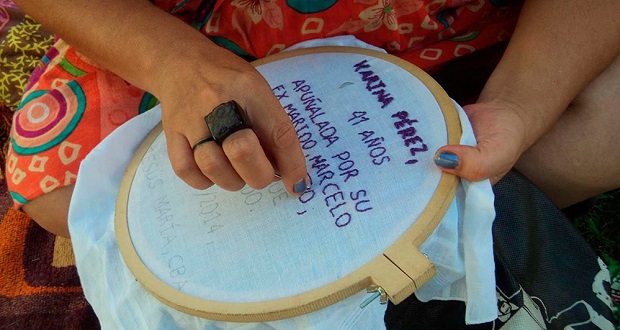 KARINA PÉREZ,
41 AÑOS
APUÑALADA POR SU
EX MARIDO MARCELO
/2014,
JESÚS MARÍA, CBA